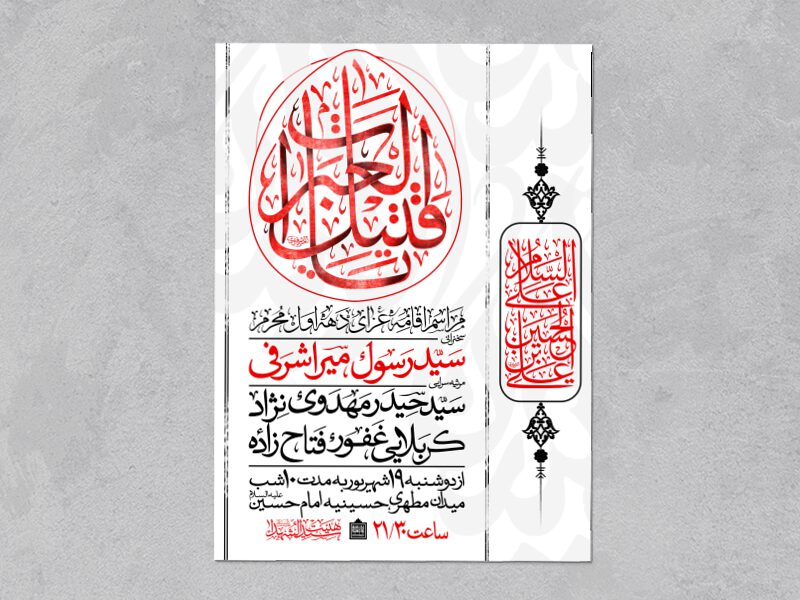 یا قتیل العبرات
مراسم اقامه عزای دهه اول محرم
سخنران
سیّد رسول میراشرفی
مرثیه سرایی
سیّد حیدر مهدوی نژاد
کربلایی غفور فتاح زاده
از دوشنبه ۱۹ شهریور به مدت ۱۰ شب
میدان مطهری حسینیه امام حسین علیه السلام
ساعت ۲۱/۳۰
هیئت سیدالشهدا
السلام علی الحسین